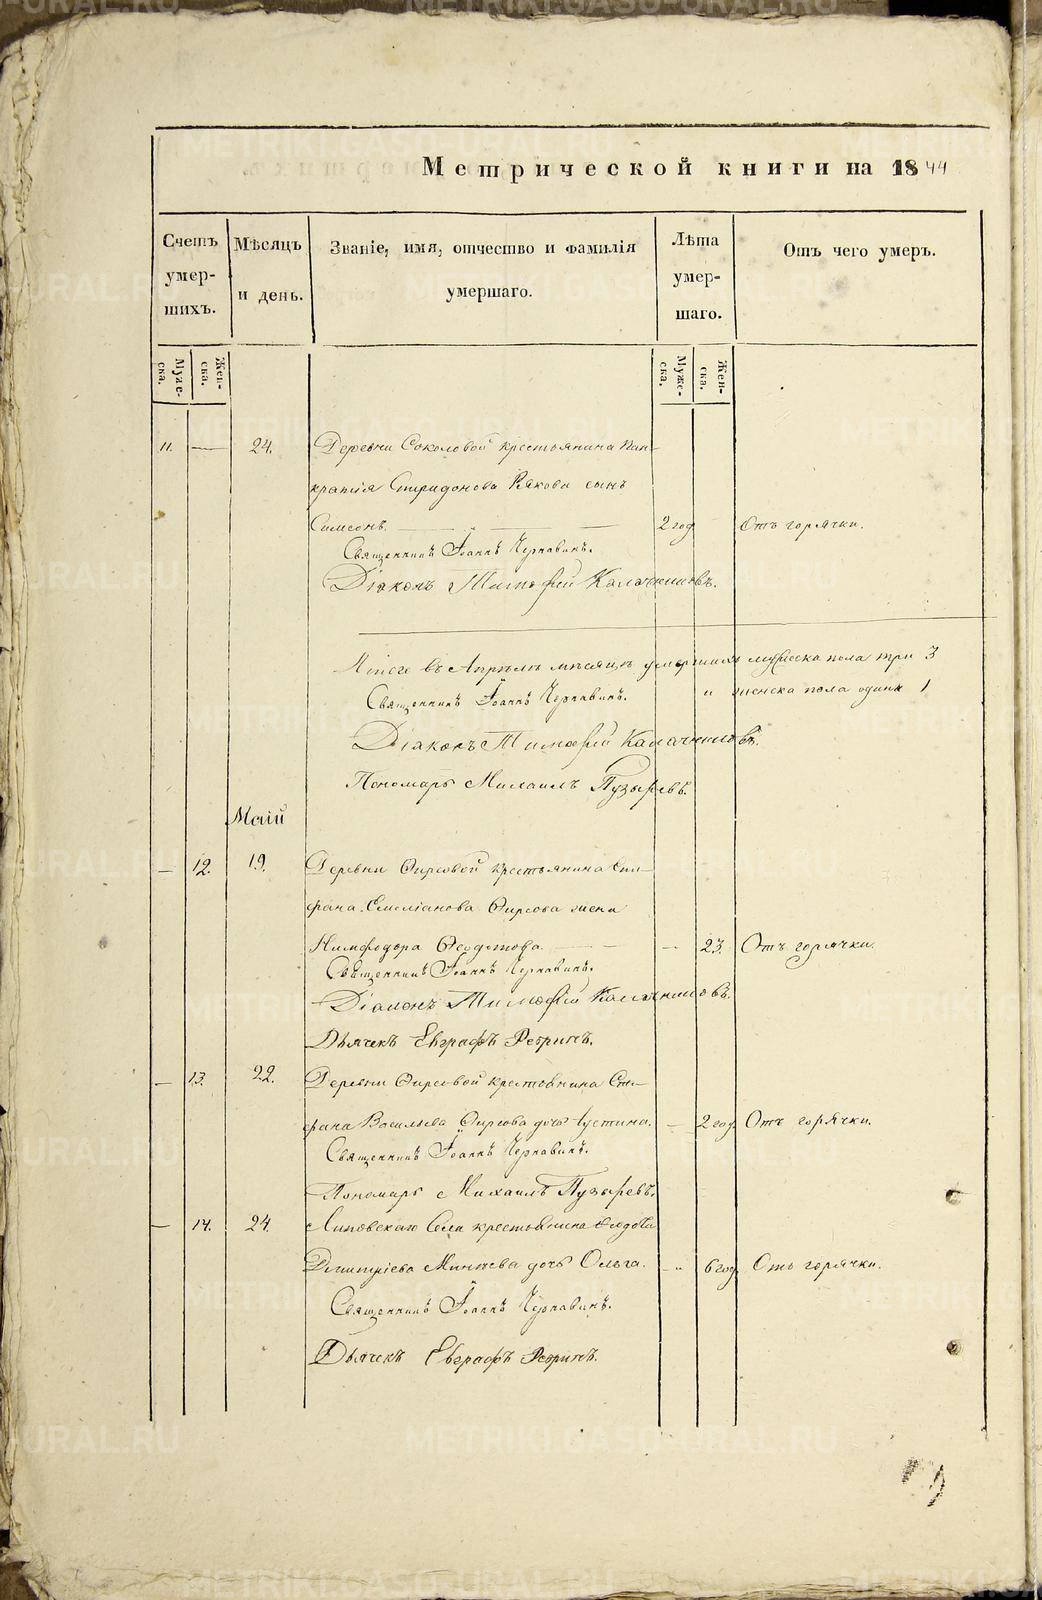 Метрической книги на 1844
Счетъ умер-шихъ.
Мѣсяцъ и день.
Званіе, имя, отчество и фамилія умершаго.
Лѣта умер-шаго.
Отъ чего умеръ.
Муже-ска.
Жен-ска.
Муже-ска.
Жен-ска.
11. — 24. Деревни Соколовой крестьянина Пан-
кратія Спиридонова сынъ
Симеонъ. 2 год Отъ горячки.
Священникъ Іоаннъ Чернавинъ.
Діаконъ Тимофей Калачниковъ.
Итого въ Апрѣлѣ мѣсяцѣ умершихъ мужеска пола три 3
Священникъ Іоаннъ Чернавинъ. и женска пола одина 1
Діаконъ Тимофей Калачниковъ.
Пономарь Михаилъ Пузыревъ.
Маій
— 12. 19. Деревни Фирсовой крестьянина Епи-
фана Емеліанова Фирсова жена
Нимфодора Федотова. — 23. Отъ горячки.
Священникъ Іоаннъ Чернавинъ.
Діаконъ Тимофей Калачниковъ.
Дьячекъ Евграфъ
— 13. 22. Деревни Фирсовой крестьянина
Васильева Фирсова дочь Іустина. — 2 год. Отъ горячки.
Священникъ Іоаннъ Чернавинъ.
Пономарь Михаилъ Пузыревъ.
— 14. 24. Липовскаго Села крестьянина
Дмитріева дочь Ольга. — 6 год. Отъ горячки.
Священникъ Іоаннъ Чернавинъ.
Дьячекъ Евграфъ
METRIKI.GASO-URAL.RU